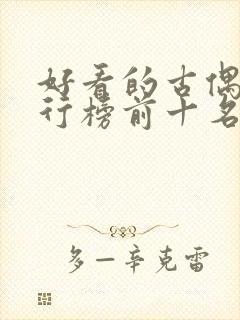 好看的古偶
行榜前十名
多一辛克雷